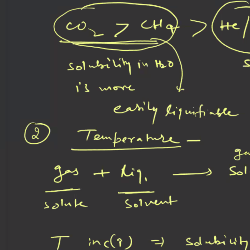 CO2 > CH4 > He/
solubility in H2O
is more
easily liquifiable
② Temperature -
ga
gas + liq. → Sol
solute solvent
T inc(↑) ⇒ solubility